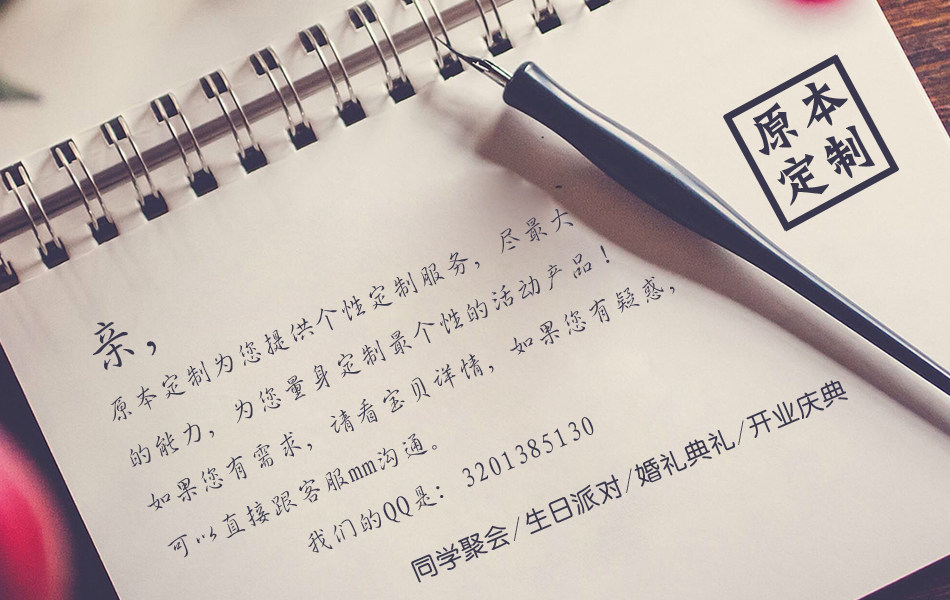 原本
定制
亲，
原本定制为您提供个性定制服务，尽最大
的能力，为您量身定制最个性的活动产品！
如果您有需求，请看宝贝详情，如果您有疑惑，
可以直接跟客服mm沟通。
我们的QQ是：3201385130
同学聚会/生日派对/婚礼典礼/开业庆典